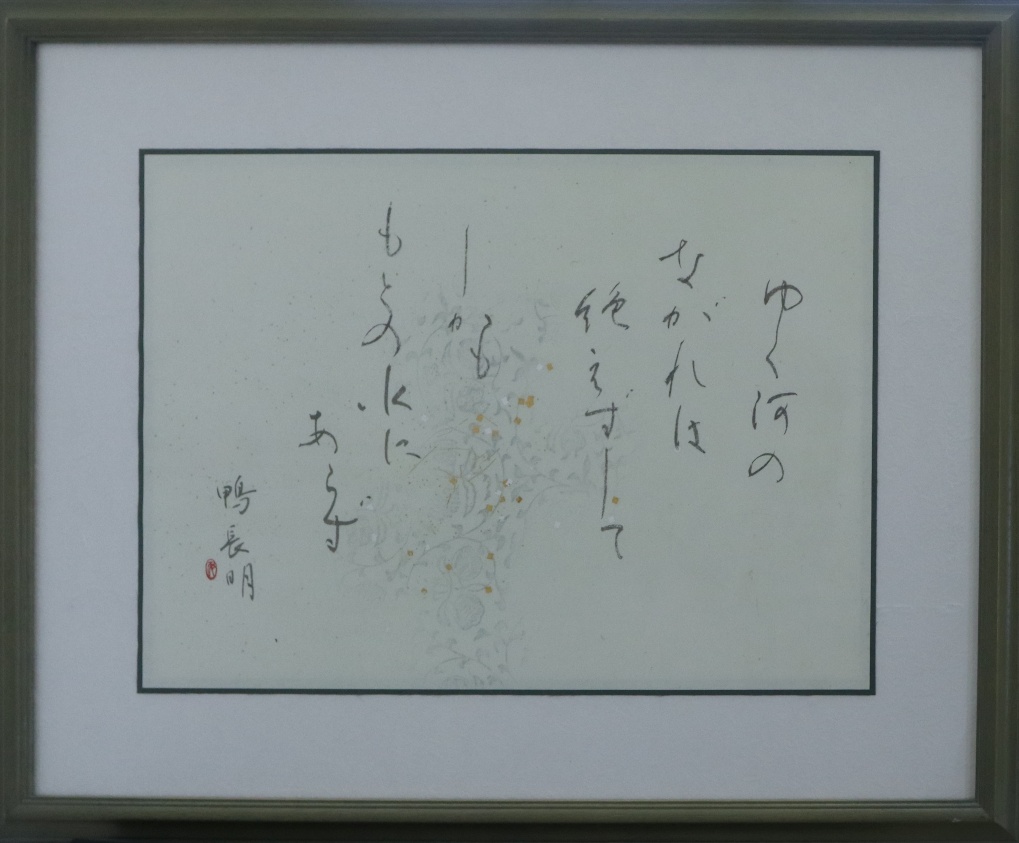 ゆく河の
ながれは
絶えずして
しかも
もとの水に
あらず
鴨長明